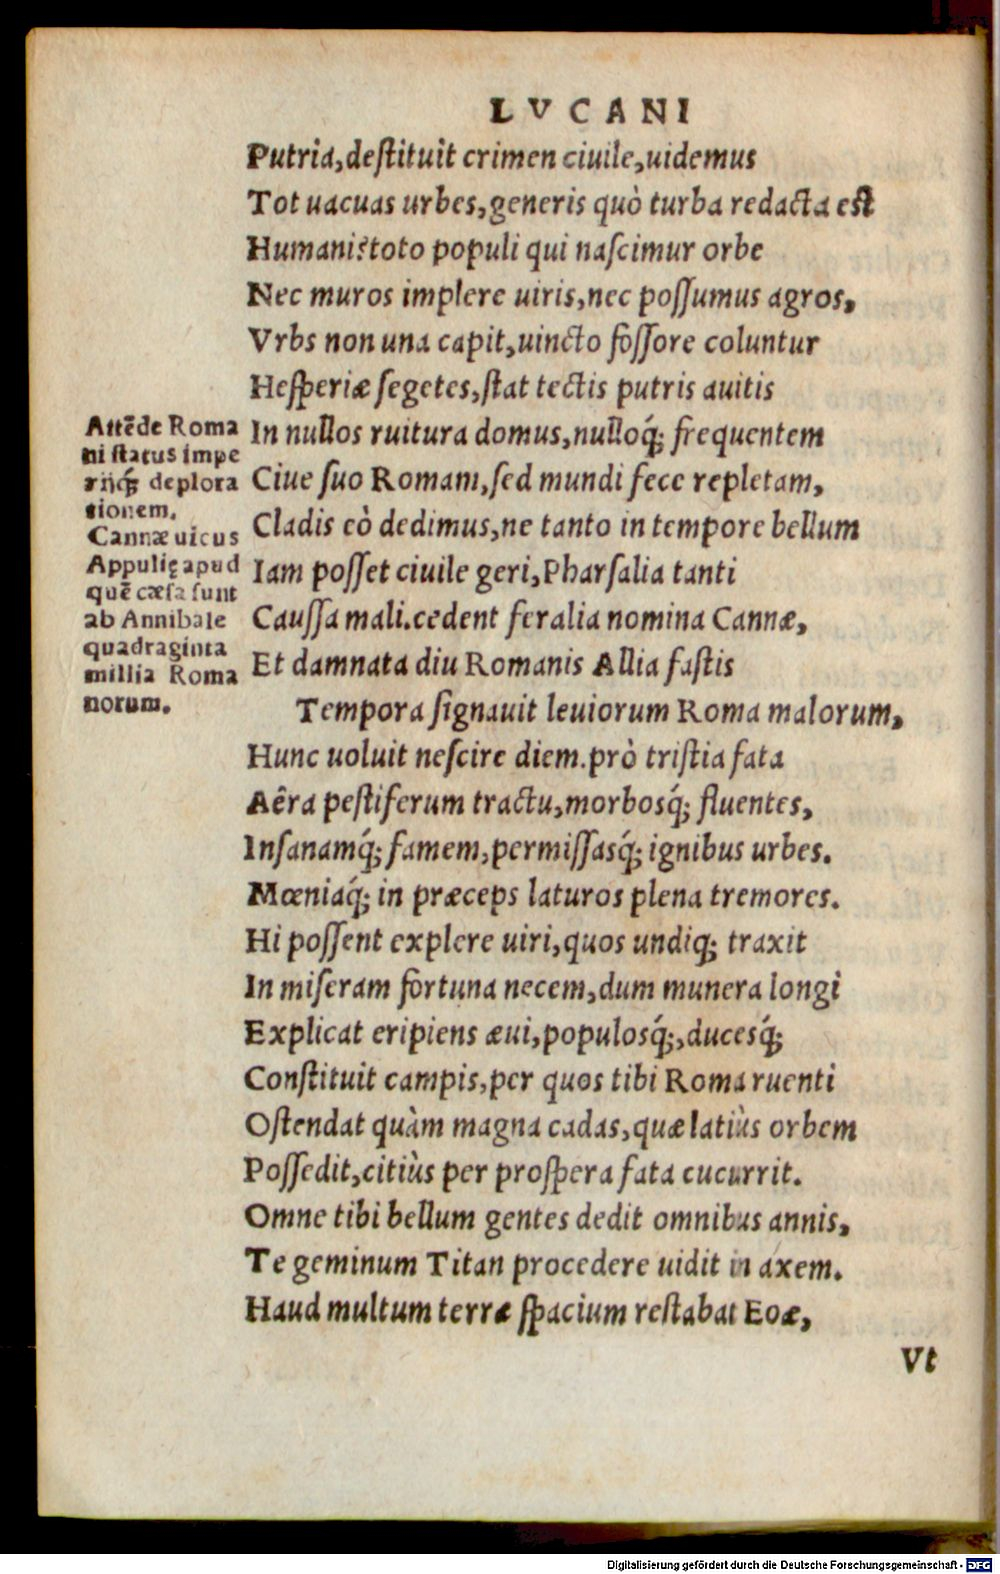 LVCANI
Putria,deſtituit crimen ciuile,uidemus
Tot uacuas urbes,generis quò turba redacta eſt
Humani?toto populi qui naſcimur orbe
Nec muros implere uiris,nec poſſumus agros,
Vrbs non una capit,uincto foſſore coluntur
Heſperiæ ſegetes,ſtat tectis putris auitis
In nullos ruitura domus,nulloq́; frequentem
Ciue ſuo Romam,ſed mundi fece repletam,
Cladis eò dedimus,ne tanto in tempore bellum
Iam poſſet ciuile geri,Pharſalia tanti
Cauſſa mali.cedent feralia nomina Cannæ,
Et damnata diu Romanis Allia faſtis
Tempora ſignauit leuiorum Roma malorum,
Hunc uoluit neſcire diem.prò triſtia fata
Aêra peſtiferum tractu,morbosq́; fluentes,
Inſanamq́; famem,permiſſasq́; ignibus urbes.
Mœniaq́; in præceps laturos plena tremores.
Hi poſſent explere uiri,quos undiq; traxit
In miſeram fortuna necem,dum munera longi
Explicat eripiens æui,populosq́;,ducesq́;
Conſtituit campis,per quos tibi Roma ruenti
Oſtendat quàm magna cadas,quæ latiùs orbem
Poſſedit,citiùs per proſpera fata cucurrit.
Omne tibi bellum gentes dedit omnibus annis,
Te geminum Titan procedere uidit in áxem.
Haud multum terræ ſpacium reſtabat Eoæ,
Vt
Attēde Roma
ni ſtatus impe
rijq́; deplora
tionem.
Cannæ uicus
Appulię apud
quē cæſa ſunt
ab Annibale
quadraginta
millia Roma
norum.
Digitalisierung gefördert durch die Deutsche Forschungsgemeinschaft - DFG